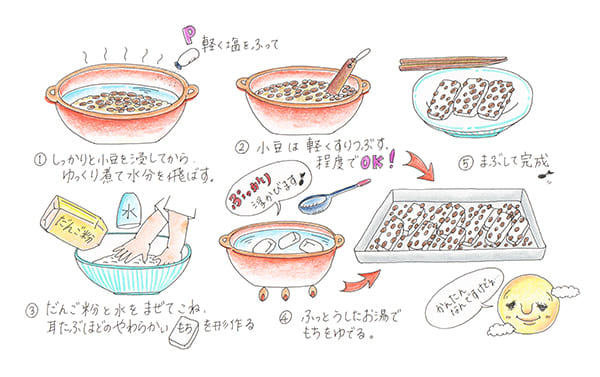 P
軽く塩をふって
① しっかりと小豆を浸してから
ゆっくり煮て水分を飛ばす。
② 小豆は軽くすりつぶす。
程度でOK!
⑤ まぶして完成
だんご粉
水
③ だんご粉と水をまぜてこね、
耳たぶほどのやわらかい もち を形作る
ぷっかり
浮かびます
④ ふっとうしたお湯で
もちをゆでる。
かんたん
なんですけどネ